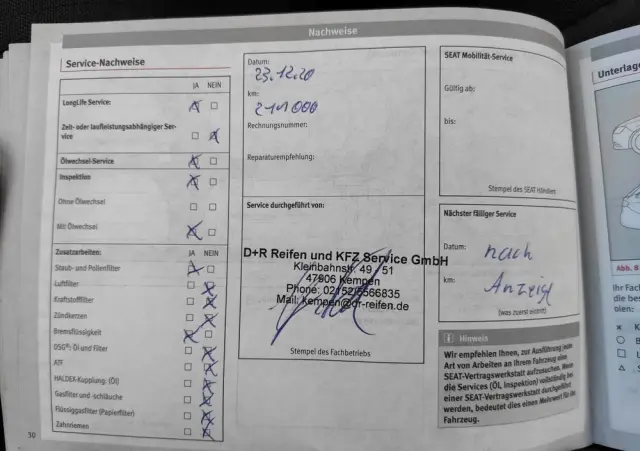 Nachweise
Service-Nachweise
JA NEIN
LongLife Service:
Zeit- oder laufleistungsabhängiger Ser-
vice
Ölwechsel-Service
Inspektion
Ohne Ölwechsel
Mit Ölwechsel
Zusatzarbeiten: JA NEIN
Staub- und Pollenfilter
Luftfilter
Kraftstofffilter
Zündkerzen
Bremsflüssigkeit
DSG®: Öl und Filter
ATF
HALDEX-Kupplung: (Öl)
Gasfilter und -schläuche
Flüssiggasfilter (Papierfilter)
Zahnriemen
30
Datum:
23.12.20
km:
211000
Rechnungsnummer:
Reparaturempfehlung:
Service durchgeführt von:
D+R Reifen und KFZ Service GmbH
Kleinbahnstr. 49 - 51
47906 Kempen
Phone: 02152/5566835
Mail: kempen@dr-reifen.de
Stempel des Fachbetriebs
SEAT Mobilität-Service
Gültig ab:
bis:
Stempel des SEAT Händlers
Nächster fälliger Service
Datum: nach
km: Anzeige
(was zuerst eintritt)
Hinweis
Wir empfehlen Ihnen, zur Ausführung jeden
Art von Arbeiten an Ihrem Fahrzeug eine
SEAT-Vertragswerkstatt aufzusuchen. Wenn
die Services (Öl, Inspektion) vollständig bei
einer SEAT-Vertragswerkstatt durchgeführt
werden, bedeutet dies einen Mehrwert für Ihr
Fahrzeug.
Unterlage
Abb. 9
Ihr Fach
die bes
olen: